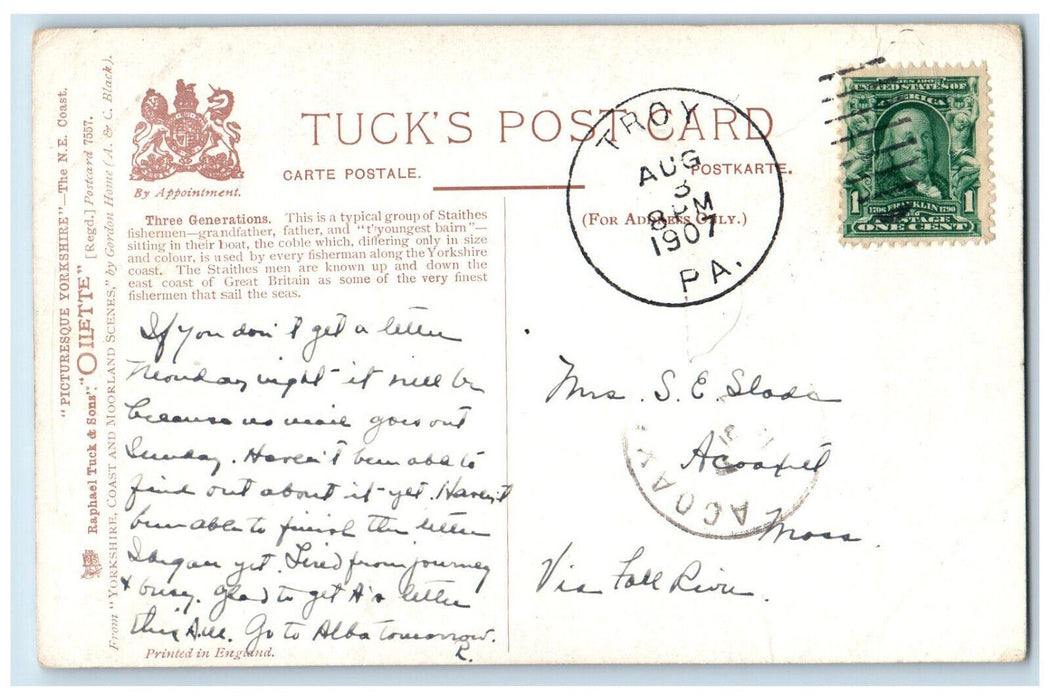 "PICTURESQUE YORKSHIRE"—The N.E. Coast.
Raphael Tuck & Sons' "OILETTE" [Regd.] Postcard 7557.
From "YORKSHIRE, COAST AND MOORLAND SCENES," by Gordon Home (A. & C. Black).
By Appointment.
TUCK'S POST CARD
CARTE POSTALE.
POSTKARTE.
(For Address Only.)
Three Generations. This is a typical group of Staithes
fishermen—grandfather, father, and "t'youngest bairn"—
sitting in their boat, the coble which, differing only in size
and colour, is used by every fisherman along the Yorkshire
coast. The Staithes men are known up and down the
east coast of Great Britain as some of the very finest
fishermen that sail the seas.
If you don't get a letter
Monday night it will be
because no mail goes out
Sunday. Haven't been able to
find out about it yet. Haven't
been able to finish the letter
I began yet. Tired from journey
& busy. Glad to get A's letter
this A.M. Go to Alba tomorrow.
R.
Printed in England.
TROY
AUG
3
8 PM
1907
PA.
UNITED STATES OF
AMERICA
1706 FRANKLIN 1790
1 1
ONE CENT
Mrs. S. E. Slade
Acoaxet
Mass.
Via Fall River.
ACOAX